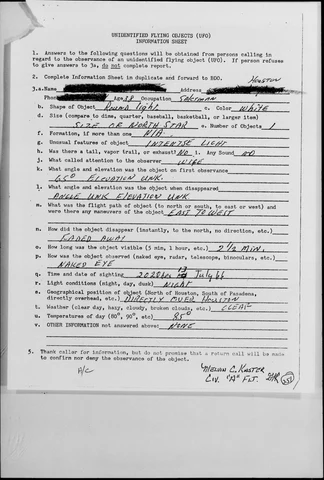 UNIDENTIFIED FLYING OBJECTS (UFO)
INFORMATION SHEET
1. Answers to the following questions will be obtained from persons calling in
regard to the observance of an unidentified flying object (UFO). If person refuses
to give answers to 3a, do not complete report.
2. Complete Information Sheet in duplicate and forward to BDO.
HOUSTON
3.a.Name Address
Phone Age 38 Occupation SALESMAN
b. Shape of Object ROUND light c. Color WHITE
d. Size (compare to dime, quarter, baseball, basketball, or larger item)
SIZE OF NORTH STAR e. Number of Objects 1
f. Formation, if more than one N/A
g. Unusual features of object INTENSE LIGHT
h. Was there a tail, vapor trail, or exhaust? NO i. Any Sound NO
j. What called attention to the observer WIFE
k. What angle and elevation was the object on first observance
65° ELEVATION UNK.
l. What angle and elevation was the object when disappeared
ANGLE UNK ELEVATION UNK
m. What was the flight path of object (to north or south, to east or west) and
were there any maneuvers of the object EAST TO WEST
n. How did the object disappear (instantly, to the north, no direction, etc.)
FADED AWAY
o. How long was the object visible (5 min, 1 hour, etc.) 2 1/2 MIN.
p. How was the object observed (naked eye, radar, telescope, binoculars, etc.)
NAKED EYE
q. Time and date of sighting July 66
r. Light conditions (night, day, dusk) NIGHT
s. Geographical position of object (North of Houston, South of Pasadena,
directly overhead, etc.) DIRECTLY OVER HOUSTON
t. Weather (clear day, hazy, cloudy, broken clouds, etc.) CLEAR
u. Temperatures of day (80°, 90°, etc.) 85°
v. OTHER INFORMATION not answered above: NONE
3. Thank caller for information, but do not promise that a return call will be made
to confirm nor deny the observance of the object.
MELVIN C. KUSTER
CIV. "A" FLT.